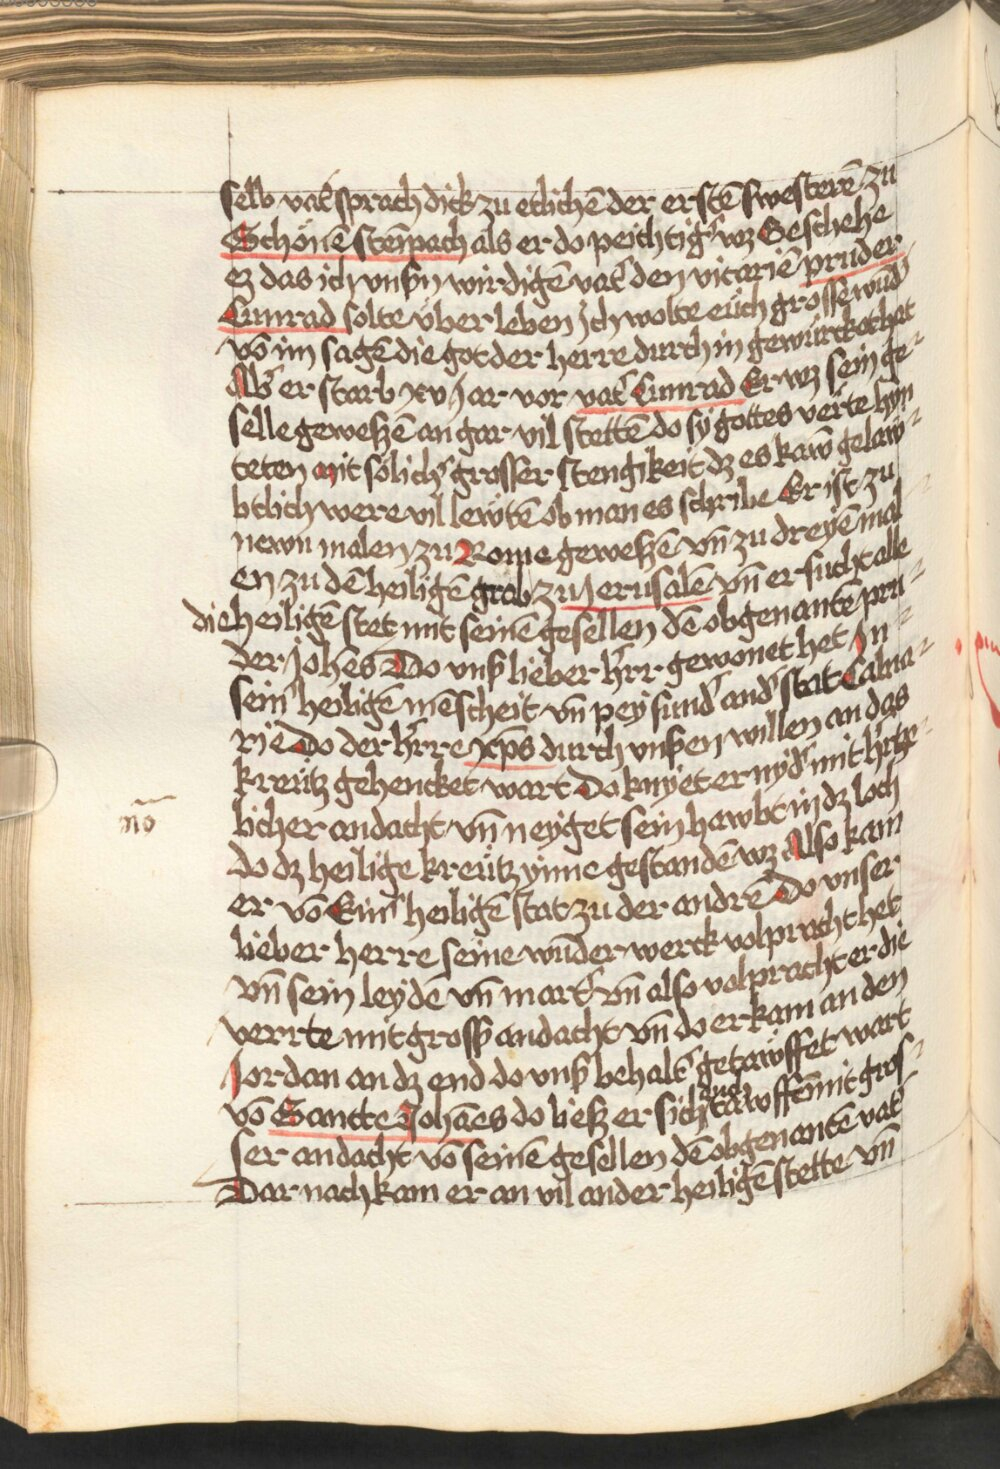 selb vat͛ sprach dick zu etlichē der erstē swesterē zu
Schönē stēpach als er do peichtig͛ wz Geschehe
ez das ich vnsṉ wirdigē vat͛ den vicariē pruder
Cunrad solte vber leben ich wolte eüch grosse wūd͛
vō im sagē die got der herre durch in gewürcket hat
Ab͛ er starb xv jar vor vat͛ Cunrad Er wz sein ge⸗
selle geweßē an gar vil stettē do sy gottes verte hyn
teten mit sölich͛ grosser stengikeit dz es kaw̄ gelaw⸗
btlich were vil lewtē ob man es schribe Er ist zu
newn malen zu Rome geweßē vn̄ zu dreyē mal
en zu dē heiligē grab zu Jerusalē vn̄ er sucht alle
die heiligē stet mit seinē gesellen dē obgenantē pru⸗
der Johēs Do vnß lieber h͛rr gewonet het Jn
sein͛ heiligē mēscheit vn̄ pey sund͛ and͛ stat Calua⸗
rie Do der h͛rre xp̄s durch vnßen willen an das
kreütz gehencket wart Do knyet er nyd͛ mit h͛tz⸗
licher andacht vn̄ neyget sein hawbt in dz loch
mō
do dz heilige kreütz ynne gestandē wz Also kam
er vō Ein͛ heiligē stat zu der andrē Do vnser
lieber herre seine wūder werck volpracht het
vn̄ sein leydē vn̄ mart͛ vn̄ also volpracht er die
verrte mit grosß andacht vn̄ do er kam an den
Jordan an dz end do vnß behalt͛ getawffet wart
vō Santte Johāes do ließ er sich auch tawffē mit gros⸗
ser andacht vō seinē gesellen dē obgenantē vat͛
Dar nach kam er an vil ander heiligē stette vn̄